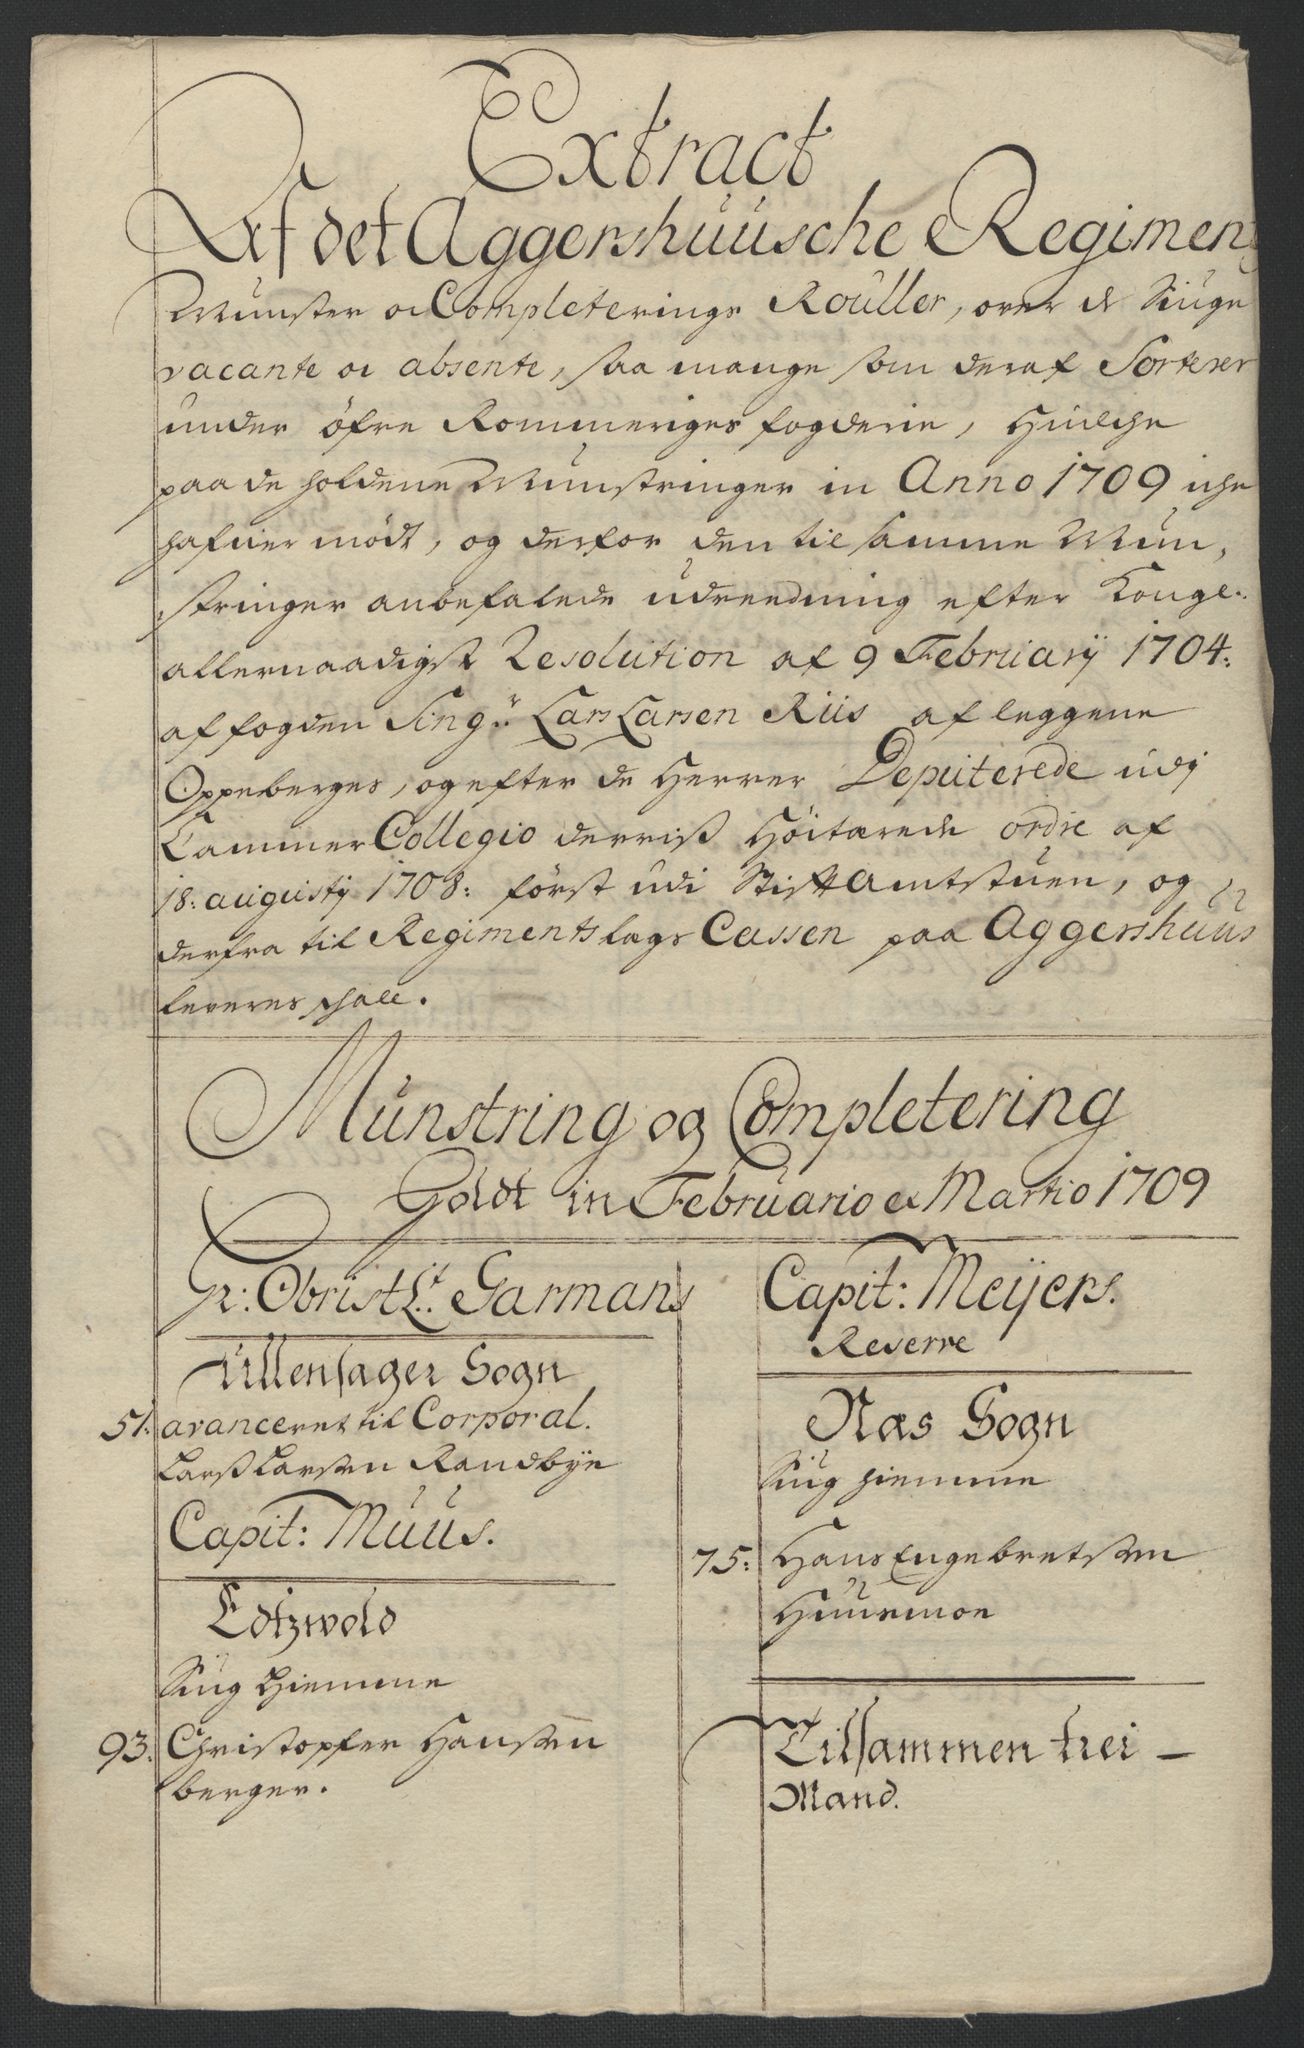 Extract
Af det Aggershuusche Regiment
Munster oc Completerings Rouller, over de Siuge
vacante oc absente, saa mange som deraf Sorterer
under öfre Rommeriges fogderie, Huilche
paa de holdene Munstringer in Anno 1709 iche
hafuer mödt, og derfor den til samme Mun,
stringer anbefalede udreedning efter Kongl:
allernaadigst Resolution af 9 Februarij 1704:
af fogden Sing:r Lars Larsen Riis af leggene
Oppeberges, og efter de Herrer Deputerede udj
CammerCollegio derris Höitærede ordre af
18: augustij 1708: först udi StifftAmtstuen, og
derfra til Regimentslags Cassen paa Aggershuus
leveres schall.
Munstring og Completering
Holdt in Februario et Martio 1709
Hr: Obrist Lt: Garmans
Ullensager Sogn
51: avanceret til Corporal.
Larss Larsen Randbye
Capit: Muus.
Edtzwold
Siug hiemme
93: Christopfer Hansen
berger.
Capit: Meijers.
Reserve
Næs Sogn
Siug hiemme
75: Hans Engebretsen
Huusmoe
Tilsammen trei –
Mand.